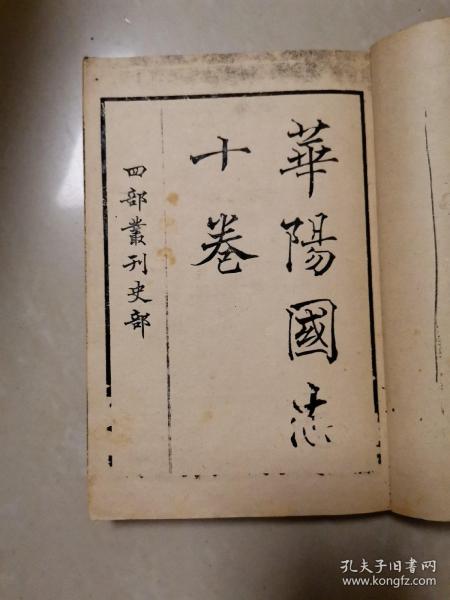 華陽國志
十卷
四部叢刊史部
孔夫子旧书网
www.kongfz.com